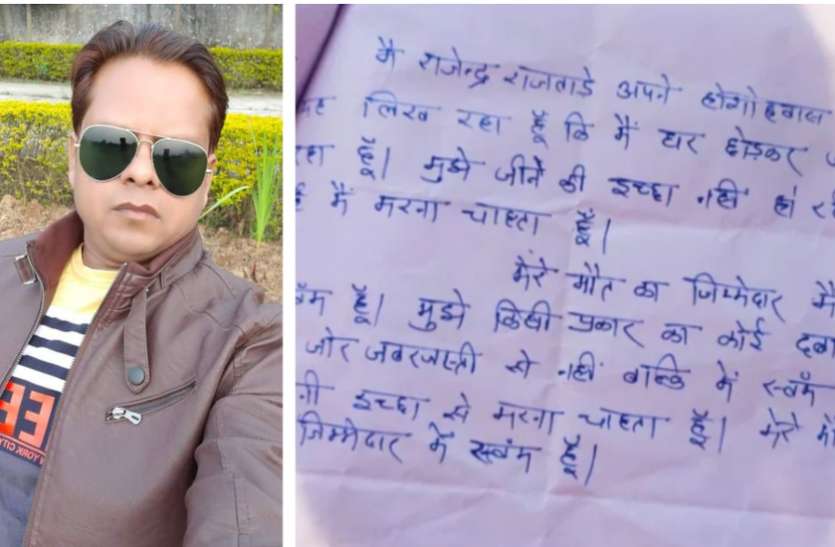 मैं राजेन्द्र राजताडे अपने होशो हवास
लिख रहा हूँ कि मैं घर छोड़कर
रहा हूँ। मुझे जीने की इच्छा नहीं हो
मैं मरना चाहता हूँ।
मेरे मौत का जिम्मेदार मैं
हूँ। मुझे किसी प्रकार का कोई
जोर जबरजस्ती से नहीं बल्कि में स्वंम
इच्छा से मरना चाहता हूँ। मेरे
जिम्मेदार में स्वंम हूँ।
YORK CITY